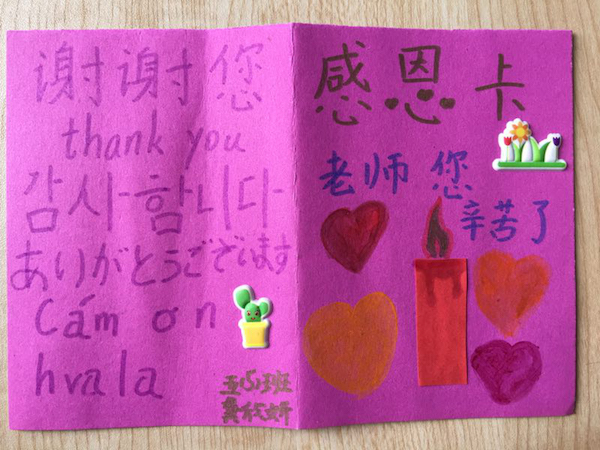 谢谢您
thank you
감사함니다
ありがとうございます
Cám ơn
hvala
感恩卡
老师 您
辛苦了